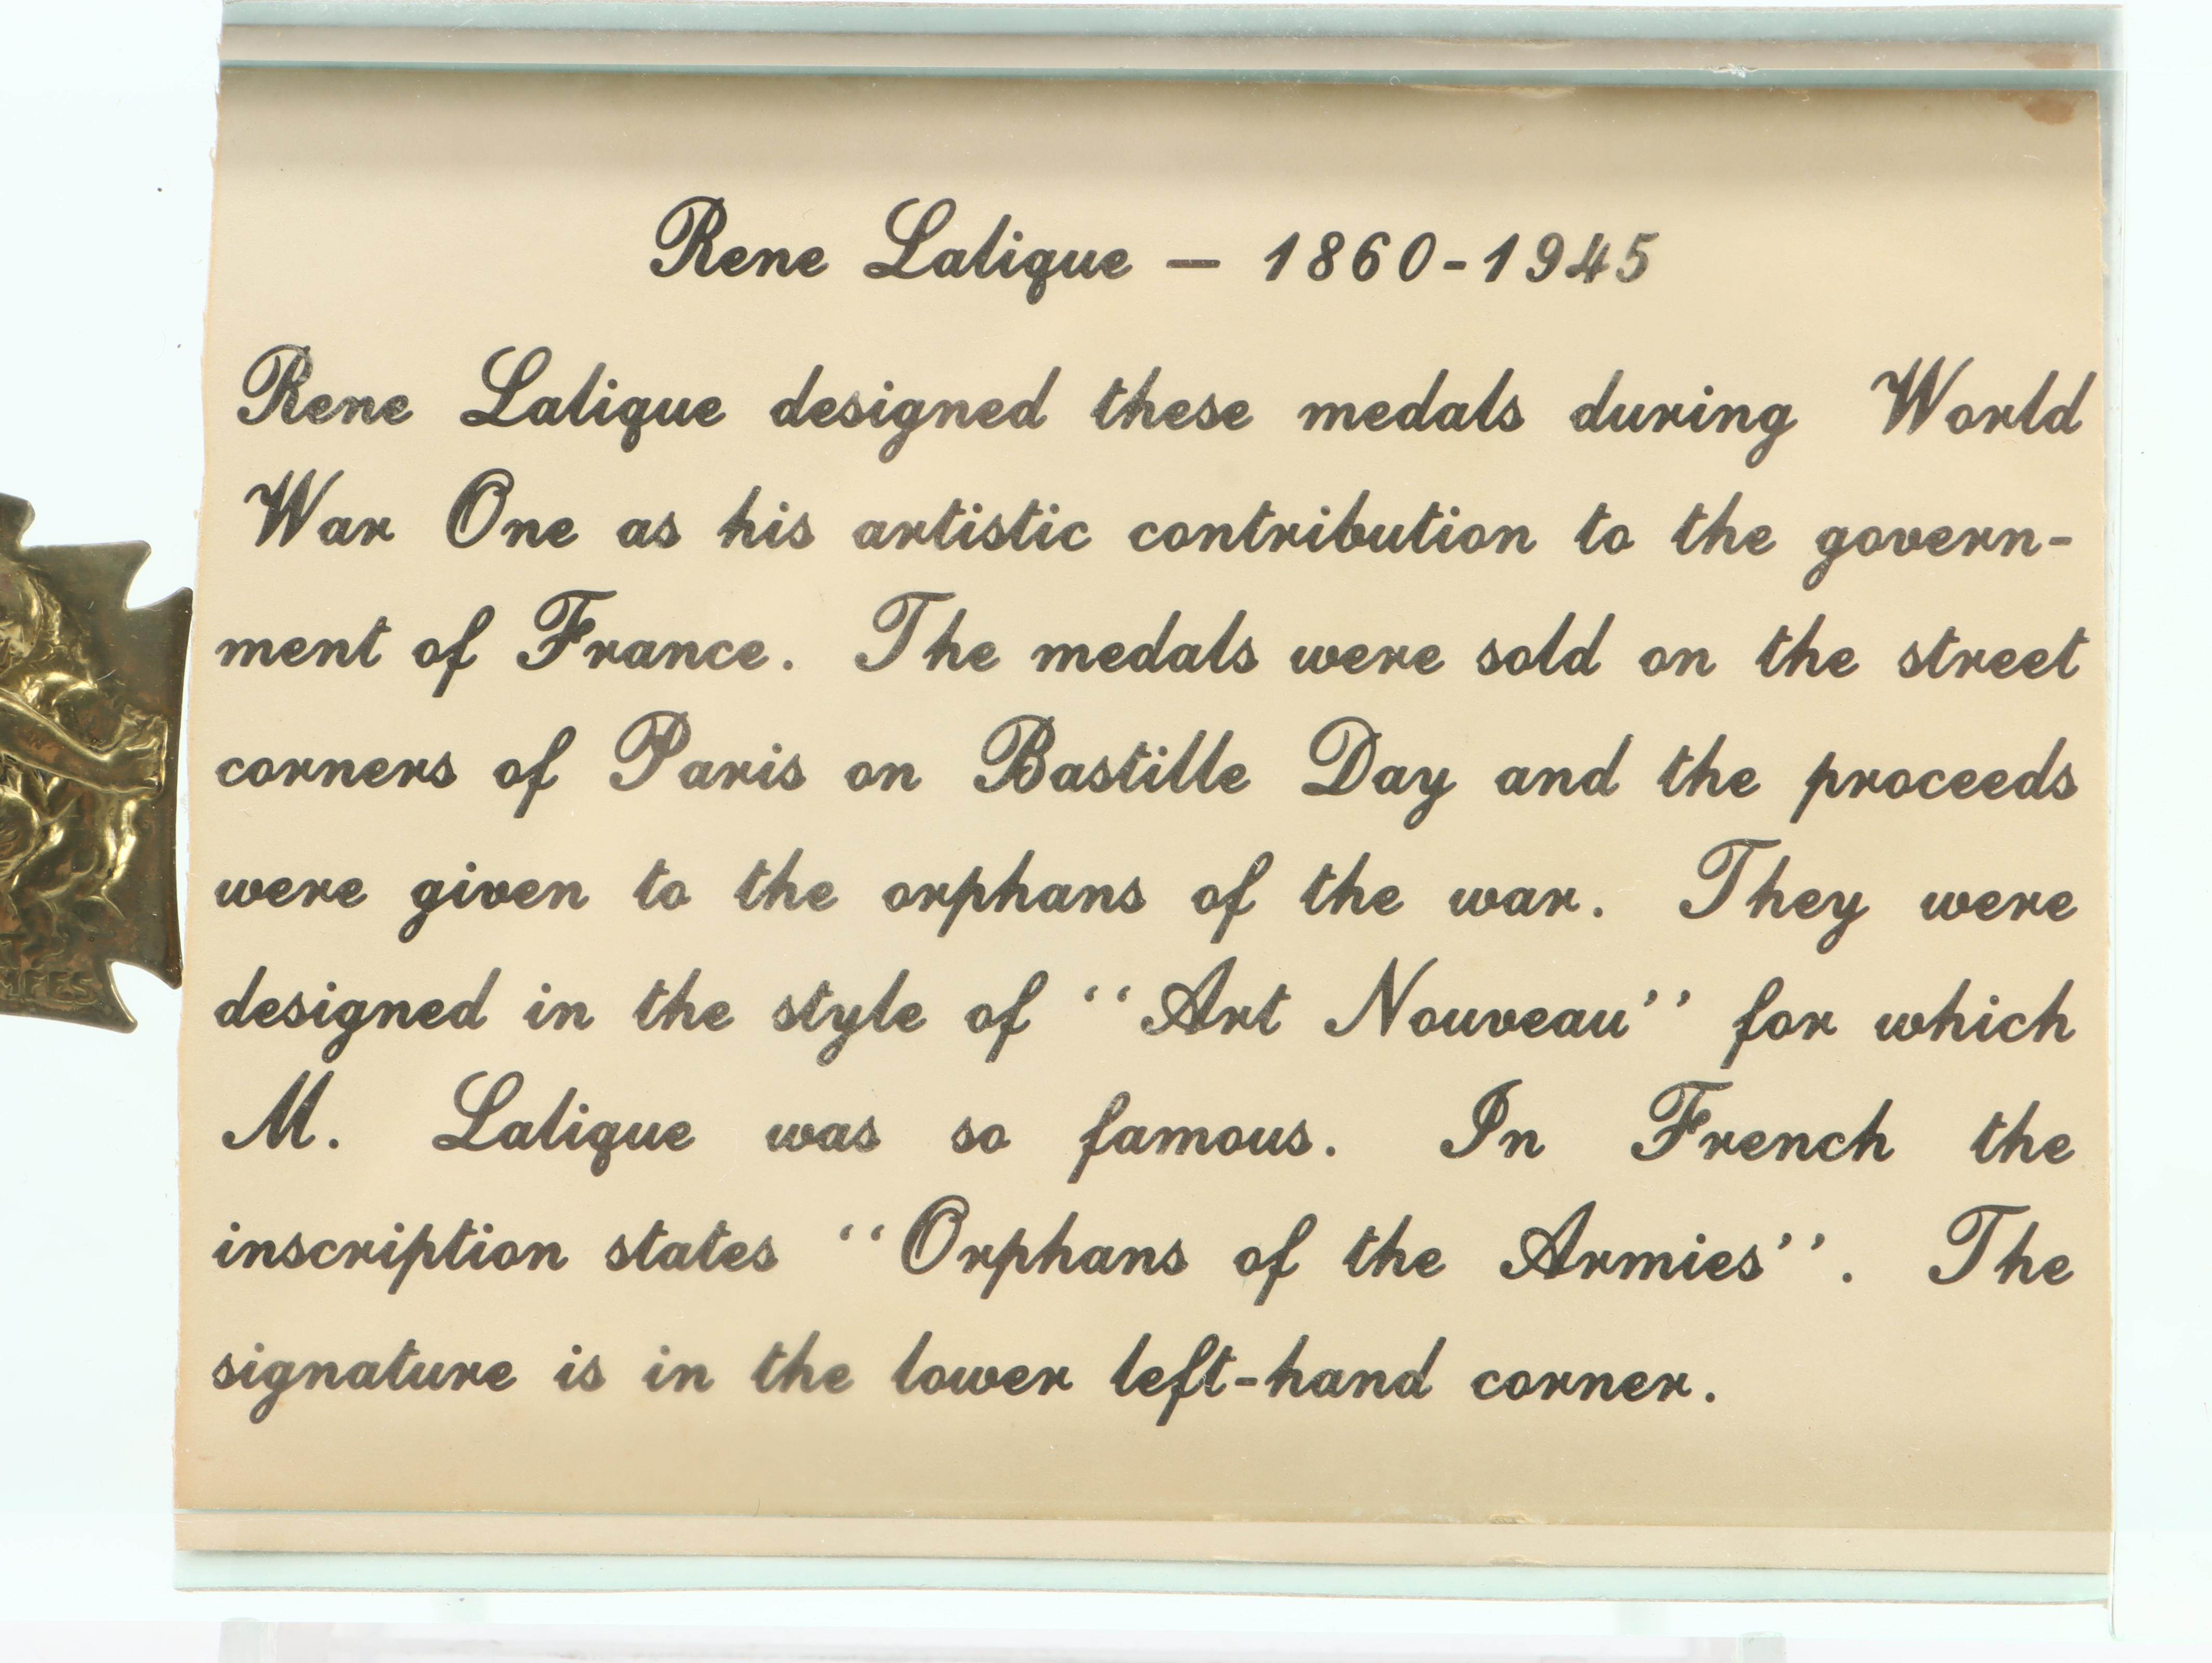 Rene Lalique — 1860-1945
Rene Lalique designed these medals during World
War One as his artistic contribution to the govern-
ment of France. The medals were sold on the street
corners of Paris on Bastille Day and the proceeds
were given to the orphans of the war. They were
designed in the style of "Art Nouveau" for which
M. Lalique was so famous. In French the
inscription states "Orphans of the Armies". The
signature is in the lower left-hand corner.